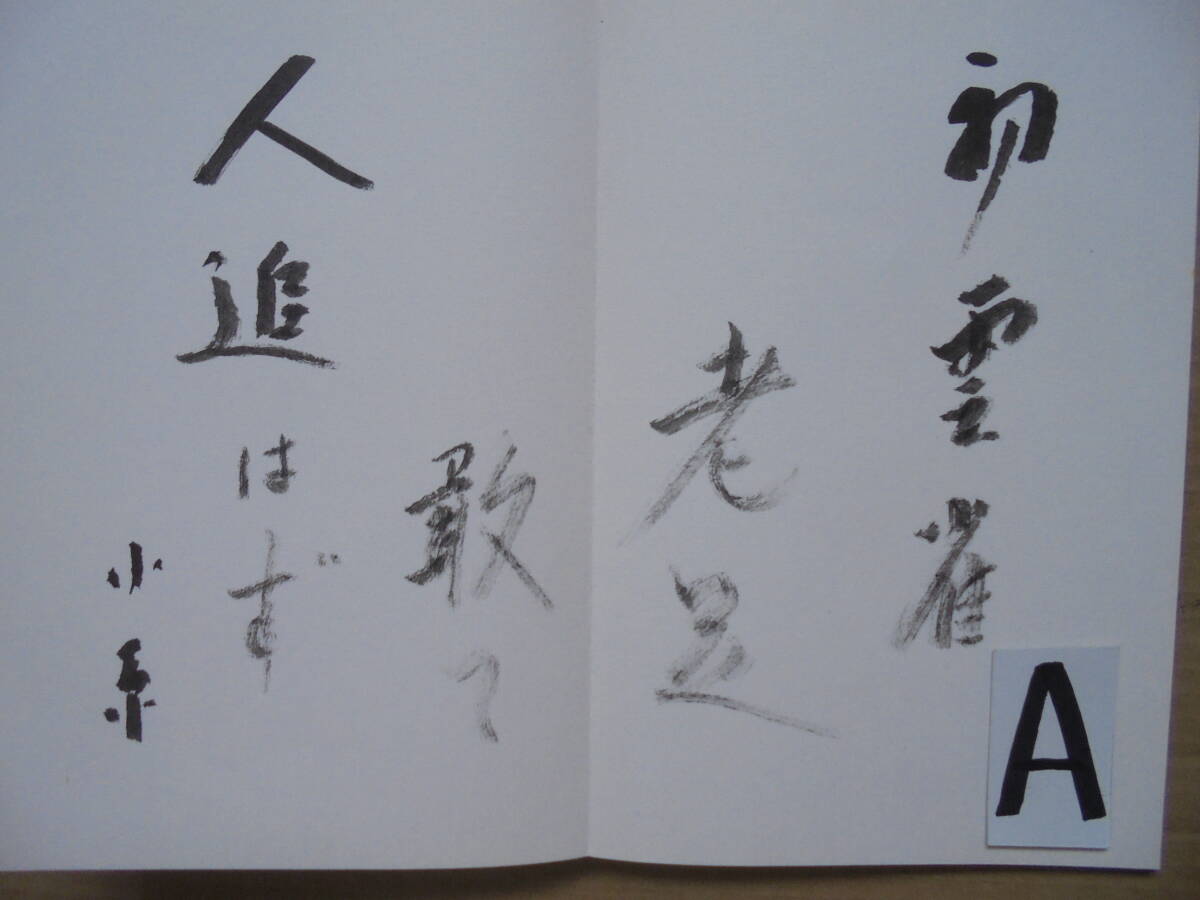 初雲雀
老足
敢て
人追はず
小糸
A